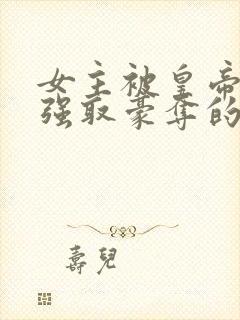 女主被皇帝
强取豪夺的
壽兒